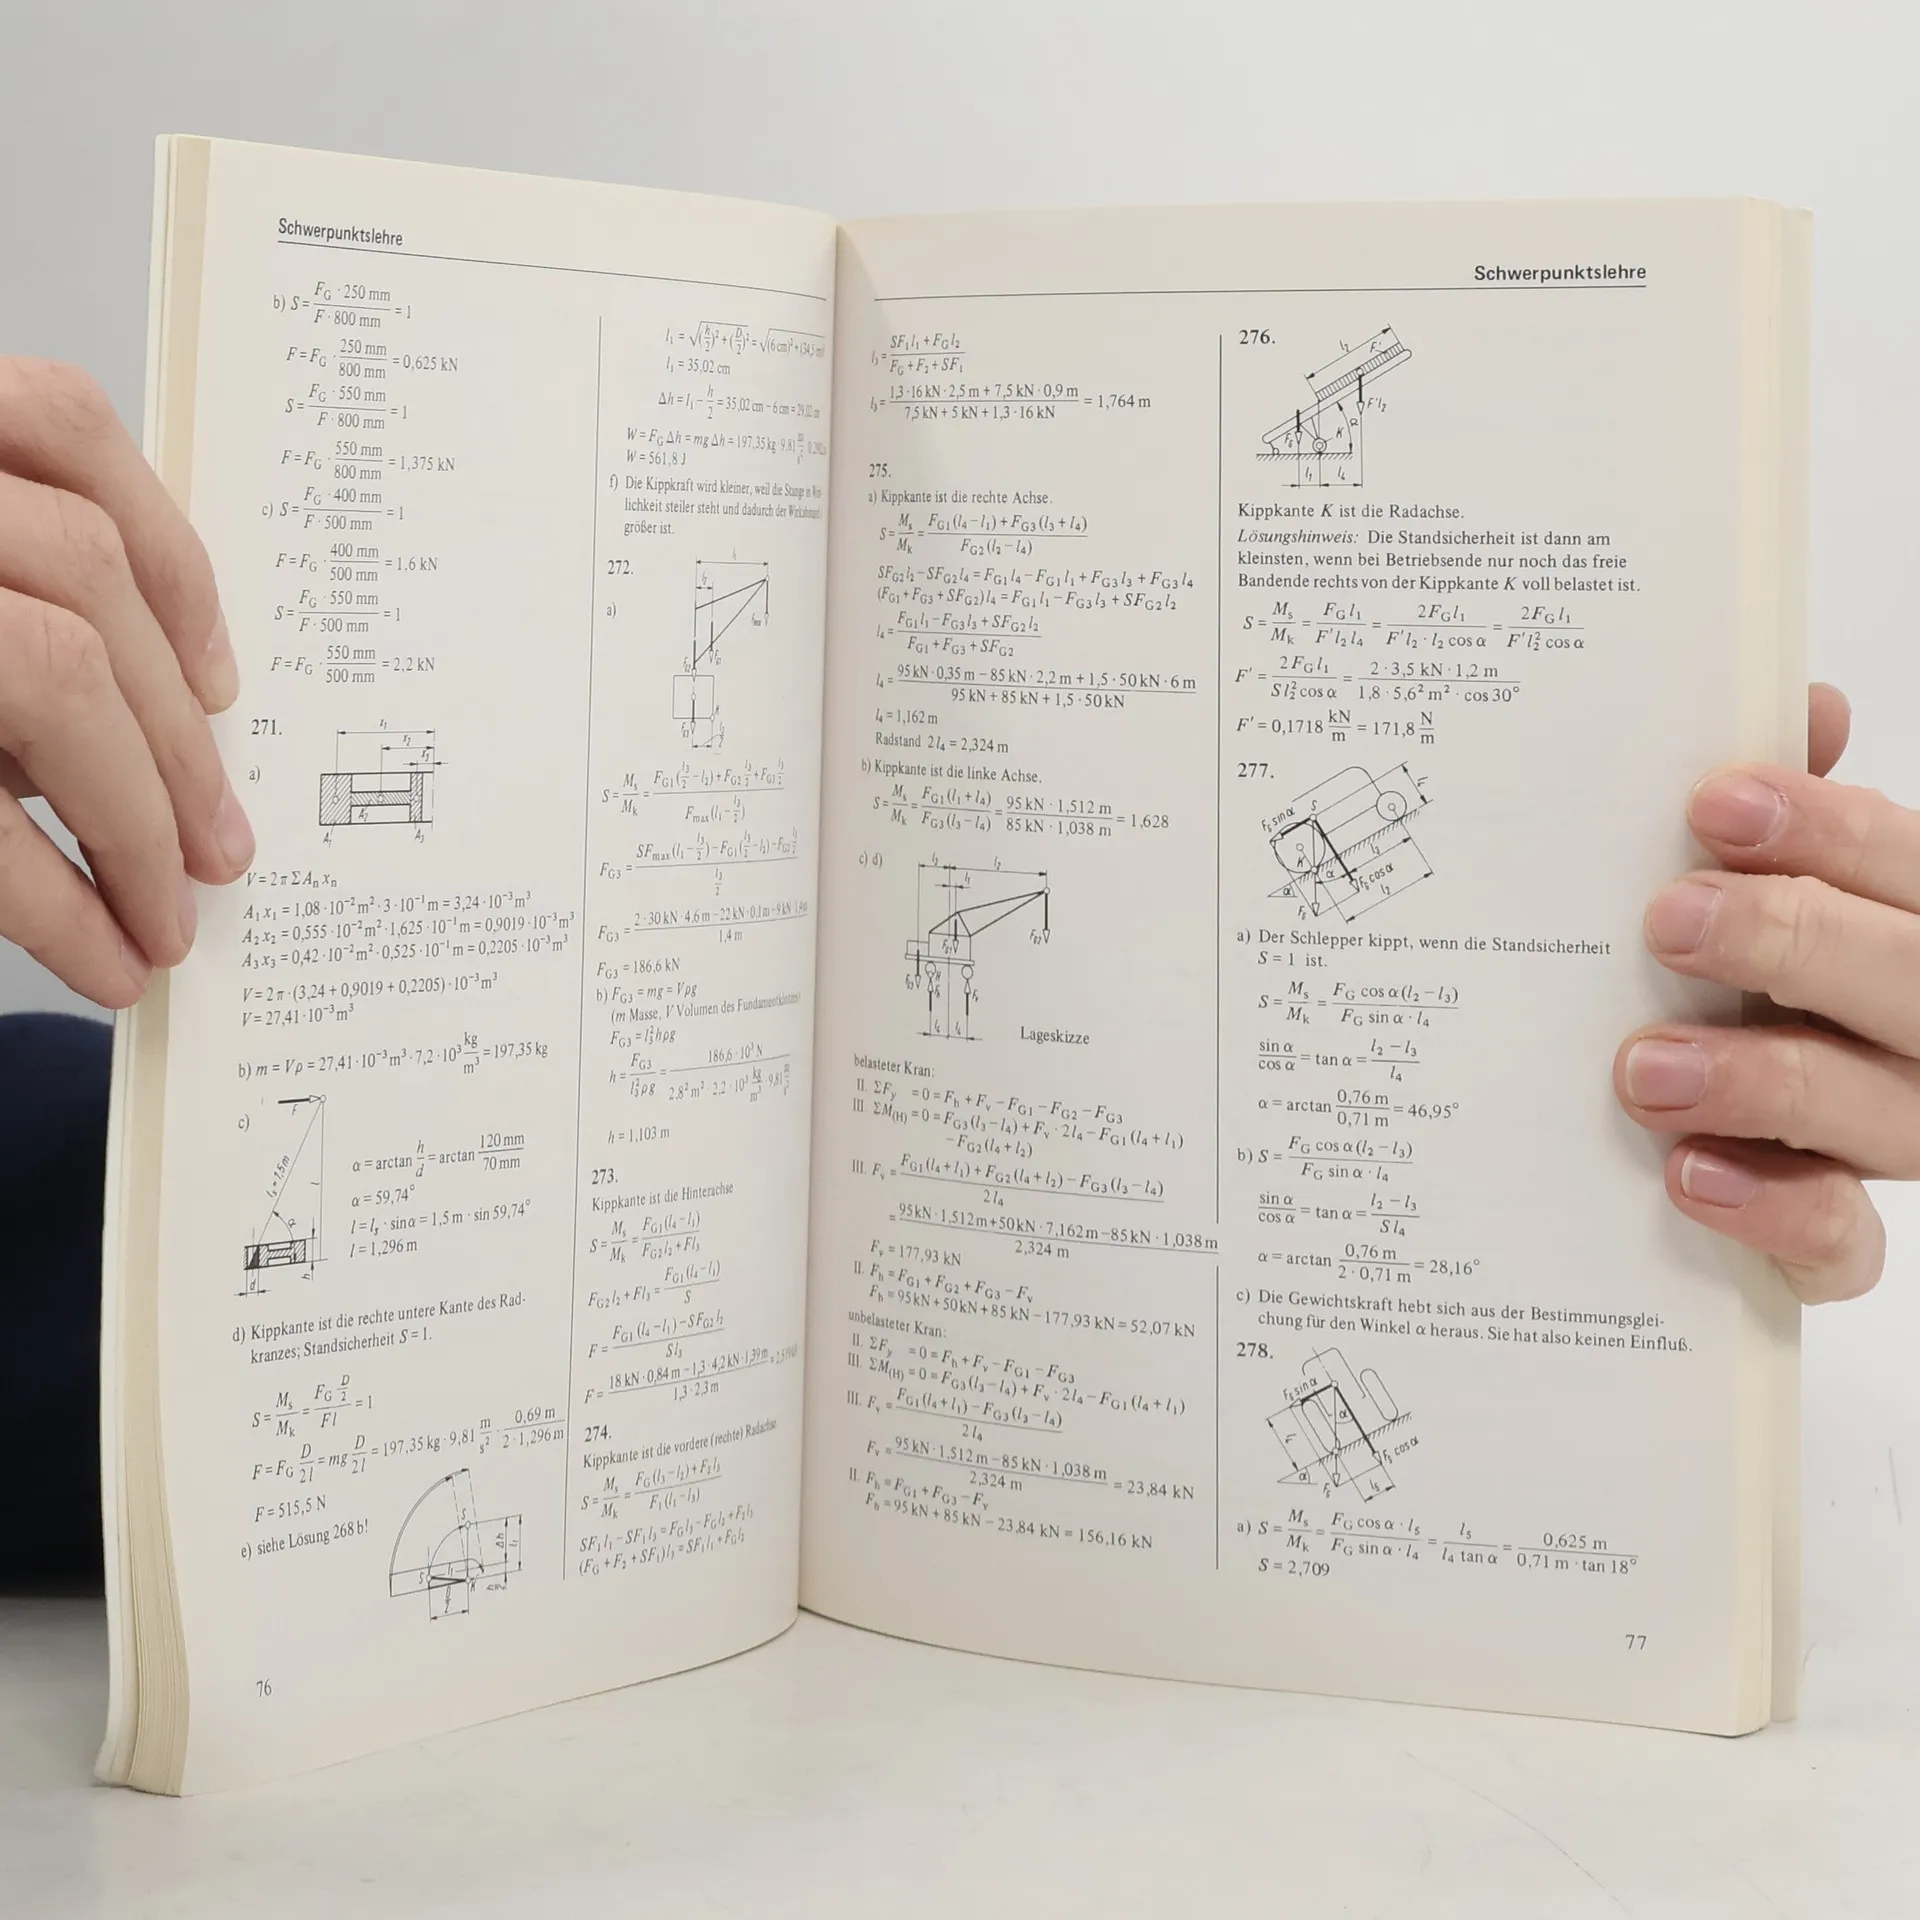 Schwerpunktslehre
b) S = F_G · 250 mm / F · 800 mm = 1
F = F_G · 250 mm / 800 mm = 0,625 kN
S = F_G · 550 mm / F · 800 mm = 1
F = F_G · 550 mm / 800 mm = 1,375 kN
c) S = F_G · 400 mm / F · 500 mm = 1
F = F_G · 400 mm / 500 mm = 1,6 kN
S = F_G · 550 mm / F · 500 mm = 1
F = F_G · 550 mm / 500 mm = 2,2 kN
271.
a)
x₁
x₂
x₃
A₁ A₂ A₃
V = 2 π Σ Aₙ xₙ
A₁ x₁ = 1,08 · 10⁻² m² · 3 · 10⁻¹ m = 3,24 · 10⁻³ m³
A₂ x₂ = 0,555 · 10⁻² m² · 1,625 · 10⁻¹ m = 0,9019 · 10⁻³ m³
A₃ x₃ = 0,42 · 10⁻² m² · 0,525 · 10⁻¹ m = 0,2205 · 10⁻³ m³
V = 2 π · (3,24 + 0,9019 + 0,2205) · 10⁻³ m³
V = 27,41 · 10⁻³ m³
b) m = Vρ = 27,41 · 10⁻³ m³ · 7,2 · 10³ kg/m³ = 197,35 kg
c)
F
lₛ = 1,5 m
l
α
h
d
α = arctan h/d = arctan 120 mm / 70 mm
α = 59,74°
l = lₛ · sin α = 1,5 m · sin 59,74°
l = 1,296 m
d) Kippkante ist die rechte untere Kante des Rad-
kranzes; Standsicherheit S = 1.
S = Mₛ/Mₖ = F_G D/2 / F l = 1
F = F_G D/2l = mg D/2l = 197,35 kg · 9,81 m/s² · 0,69 m / 2 · 1,296 m
F = 515,5 N
e) siehe Lösung 268 b!
S S K l₁ Δh
76
l₁ = √((h/2)² + (D/2)²) = √((6 cm)² + (34,5 cm)²
l₁ = 35,02 cm
Δh = l₁ − h/2 = 35,02 cm − 6 cm = 29,02 cm
W = F_G Δh = mg Δh = 197,35 kg · 9,81 m/s²
W = 561,8 J
f) Die Kippkraft wird kleiner, weil die Stange in
lichkeit steiler steht und dadurch der Wirkabstand l
größer ist.
272.
a)
l₁
l₂
F_max
F_G2 F_G1
K
F_G3
l₃/2
S = Mₛ/Mₖ = F_G1 (l₃/2 − l₂) + F_G2 l₃/2 + F_G3 l₃/2 / F_max (l₁ − l₃/2)
F_G3 = S F_max (l₁ − l₃/2) − F_G1 (l₃/2 − l₂) − F_G2 l₃/2 / l₃/2
F_G3 = 2 · 30 kN · 4,6 m − 22 kN · 0,1 m − 9 kN · 1,4 m / 1,4 m
F_G3 = 186,6 kN
b) F_G3 = mg = Vρg
(m Masse, V Volumen des Fundamentklotzes)
F_G3 = l₃² hρg
h = F_G3 / l₃² ρg = 186,6 · 10³ N / 2,8² m² · 2,2 · 10³ kg/m³ · 9,81 m/s²
h = 1,103 m
273.
Kippkante ist die Hinterachse
S = Mₛ/Mₖ = F_G1 (l₄ − l₁) / F_G2 l₂ + F l₃
F_G2 l₂ + F l₃ = F_G1 (l₄ − l₁) / S
F = F_G1 (l₄ − l₁) − S F_G2 l₂ / S l₃
F = 18 kN · 0,84 m − 1,3 · 4,2 kN · 1,39 m / 1,3 · 2,3 m
274.
Kippkante ist die vordere (rechte) Radachse
S = Mₛ/Mₖ = F_G (l₃ − l₂) + F₂ l₃ / F₁ (l₁ − l₃)
S F₁ l₁ − S F₁ l₃ = F_G l₃ − F_G l₂ + F₂ l₃
(F_G + F₂ + S F₁) l₃ = S F₁ l₁ + F_G l₂
Schwerpunktslehre
l₃ = S F₁ l₁ + F_G l₂ / F_G + F₂ + S F₁
l₃ = 1,3 · 16 kN · 2,5 m + 7,5 kN · 0,9 m / 7,5 kN + 5 kN + 1,3 · 16 kN = 1,764 m
275.
a) Kippkante ist die rechte Achse.
S = Mₛ/Mₖ = F_G1 (l₄ − l₁) + F_G3 (l₃ + l₄) / F_G2 (l₂ − l₄)
S F_G2 l₂ − S F_G2 l₄ = F_G1 l₄ − F_G1 l₁ + F_G3 l₃ + F_G3 l₄
(F_G1 + F_G3 + S F_G2) l₄ = F_G1 l₁ − F_G3 l₃ + S F_G2 l₂
l₄ = F_G1 l₁ − F_G3 l₃ + S F_G2 l₂ / F_G1 + F_G3 + S F_G2
l₄ = 95 kN · 0,35 m − 85 kN · 2,2 m + 1,5 · 50 kN · 6 m / 95 kN + 85 kN + 1,5 · 50 kN
l₄ = 1,162 m
Radstand 2 l₄ = 2,324 m
b) Kippkante ist die linke Achse.
S = Mₛ/Mₖ = F_G1 (l₁ + l₄) / F_G3 (l₃ − l₄) = 95 kN · 1,512 m / 85 kN · 1,038 m = 1,628
c) d)
l₃ l₂
l₁
F_G1 F_G2
F_G3 H
F_h F_v
l₄ l₄
Lageskizze
belasteter Kran:
II. ΣF_y = 0 = F_h + F_v − F_G1 − F_G2 − F_G3
III. ΣM_(H) = 0 = F_G3 (l₃ − l₄) + F_v · 2 l₄ − F_G1 (l₄ + l₁)
− F_G2 (l₄ + l₂)
III. F_v = F_G1 (l₄ + l₁) + F_G2 (l₄ + l₂) − F_G3 (l₃ − l₄) / 2 l₄
= 95 kN · 1,512 m + 50 kN · 7,162 m − 85 kN · 1,038 m / 2,324 m
F_v = 177,93 kN
II. F_h = F_G1 + F_G2 + F_G3 − F_v
F_h = 95 kN + 50 kN + 85 kN − 177,93 kN = 52,07 kN
unbelasteter Kran:
II. ΣF_y = 0 = F_h + F_v − F_G1 − F_G3
III. ΣM_(H) = 0 = F_G3 (l₃ − l₄) + F_v · 2 l₄ − F_G1 (l₄ + l₁)
III. F_v = F_G1 (l₄ + l₁) − F_G3 (l₃ − l₄) / 2 l₄
F_v = 95 kN · 1,512 m − 85 kN · 1,038 m / 2,324 m = 23,84 kN
II. F_h = F_G1 + F_G3 − F_v
F_h = 95 kN + 85 kN − 23,84 kN = 156,16 kN
276.
l₂
F'
F' l₂
F_G K α
l₁ l₄
Kippkante K ist die Radachse.
Lösungshinweis: Die Standsicherheit ist dann am
kleinsten, wenn bei Betriebsende nur noch das freie
Bandende rechts von der Kippkante K voll belastet ist.
S = Mₛ/Mₖ = F_G l₁ / F' l₂ l₄ = 2 F_G l₁ / F' l₂ · l₂ cos α = 2 F_G l₁ / F' l₂² cos α
F' = 2 F_G l₁ / S l₂² cos α = 2 · 3,5 kN · 1,2 m / 1,8 · 5,6² m² · cos 30°
F' = 0,1718 kN/m = 171,8 N/m
277.
F_G sin α
S
K
l₃
α
F_G cos α
l₂
α
F_G
a) Der Schlepper kippt, wenn die Standsicherheit
S = 1 ist.
S = Mₛ/Mₖ = F_G cos α (l₂ − l₃) / F_G sin α · l₄
sin α / cos α = tan α = l₂ − l₃ / l₄
α = arctan 0,76 m / 0,71 m = 46,95°
b) S = F_G cos α (l₂ − l₃) / F_G sin α · l₄
sin α / cos α = tan α = l₂ − l₃ / S l₄
α = arctan 0,76 m / 2 · 0,71 m = 28,16°
c) Die Gewichtskraft hebt sich aus der Bestimmungsglei-
chung für den Winkel α heraus. Sie hat also keinen Einfluß.
278.
F_G sin α
α
F_G cos α
α
F_G
l₅
a) S = Mₛ/Mₖ = F_G cos α · l₅ / F_G sin α · l₄ = l₅ / l₄ tan α = 0,625 m / 0,71 m · tan 18°
S = 2,709
77